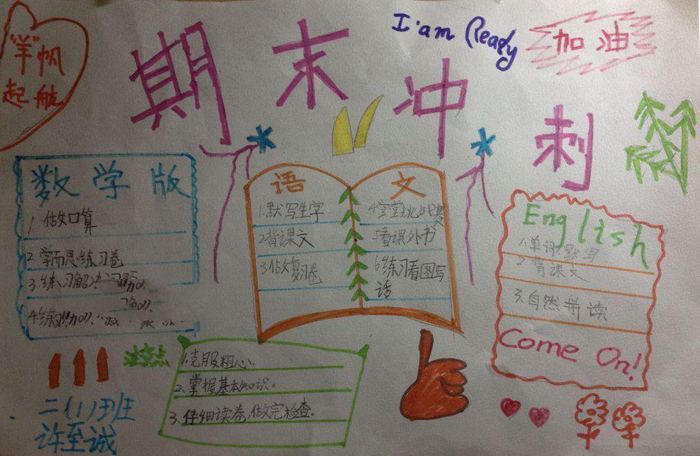 "羊"帆
起航
期末冲刺
I am Ready
加油
数学版
1.做口算
2.学而思练习卷
3.练习解决问题
4.练
语文
1.默写生字
2.背课文
3.做复习卷
5.看课外书
6.练习看图写
话
English
1.单词默写
2.背课文
3.自然拼读
Come On!
注意点
1.克服粗心.
2.掌握基本知识.
3.仔细读卷,做完检查.
二(1)班
许至诚